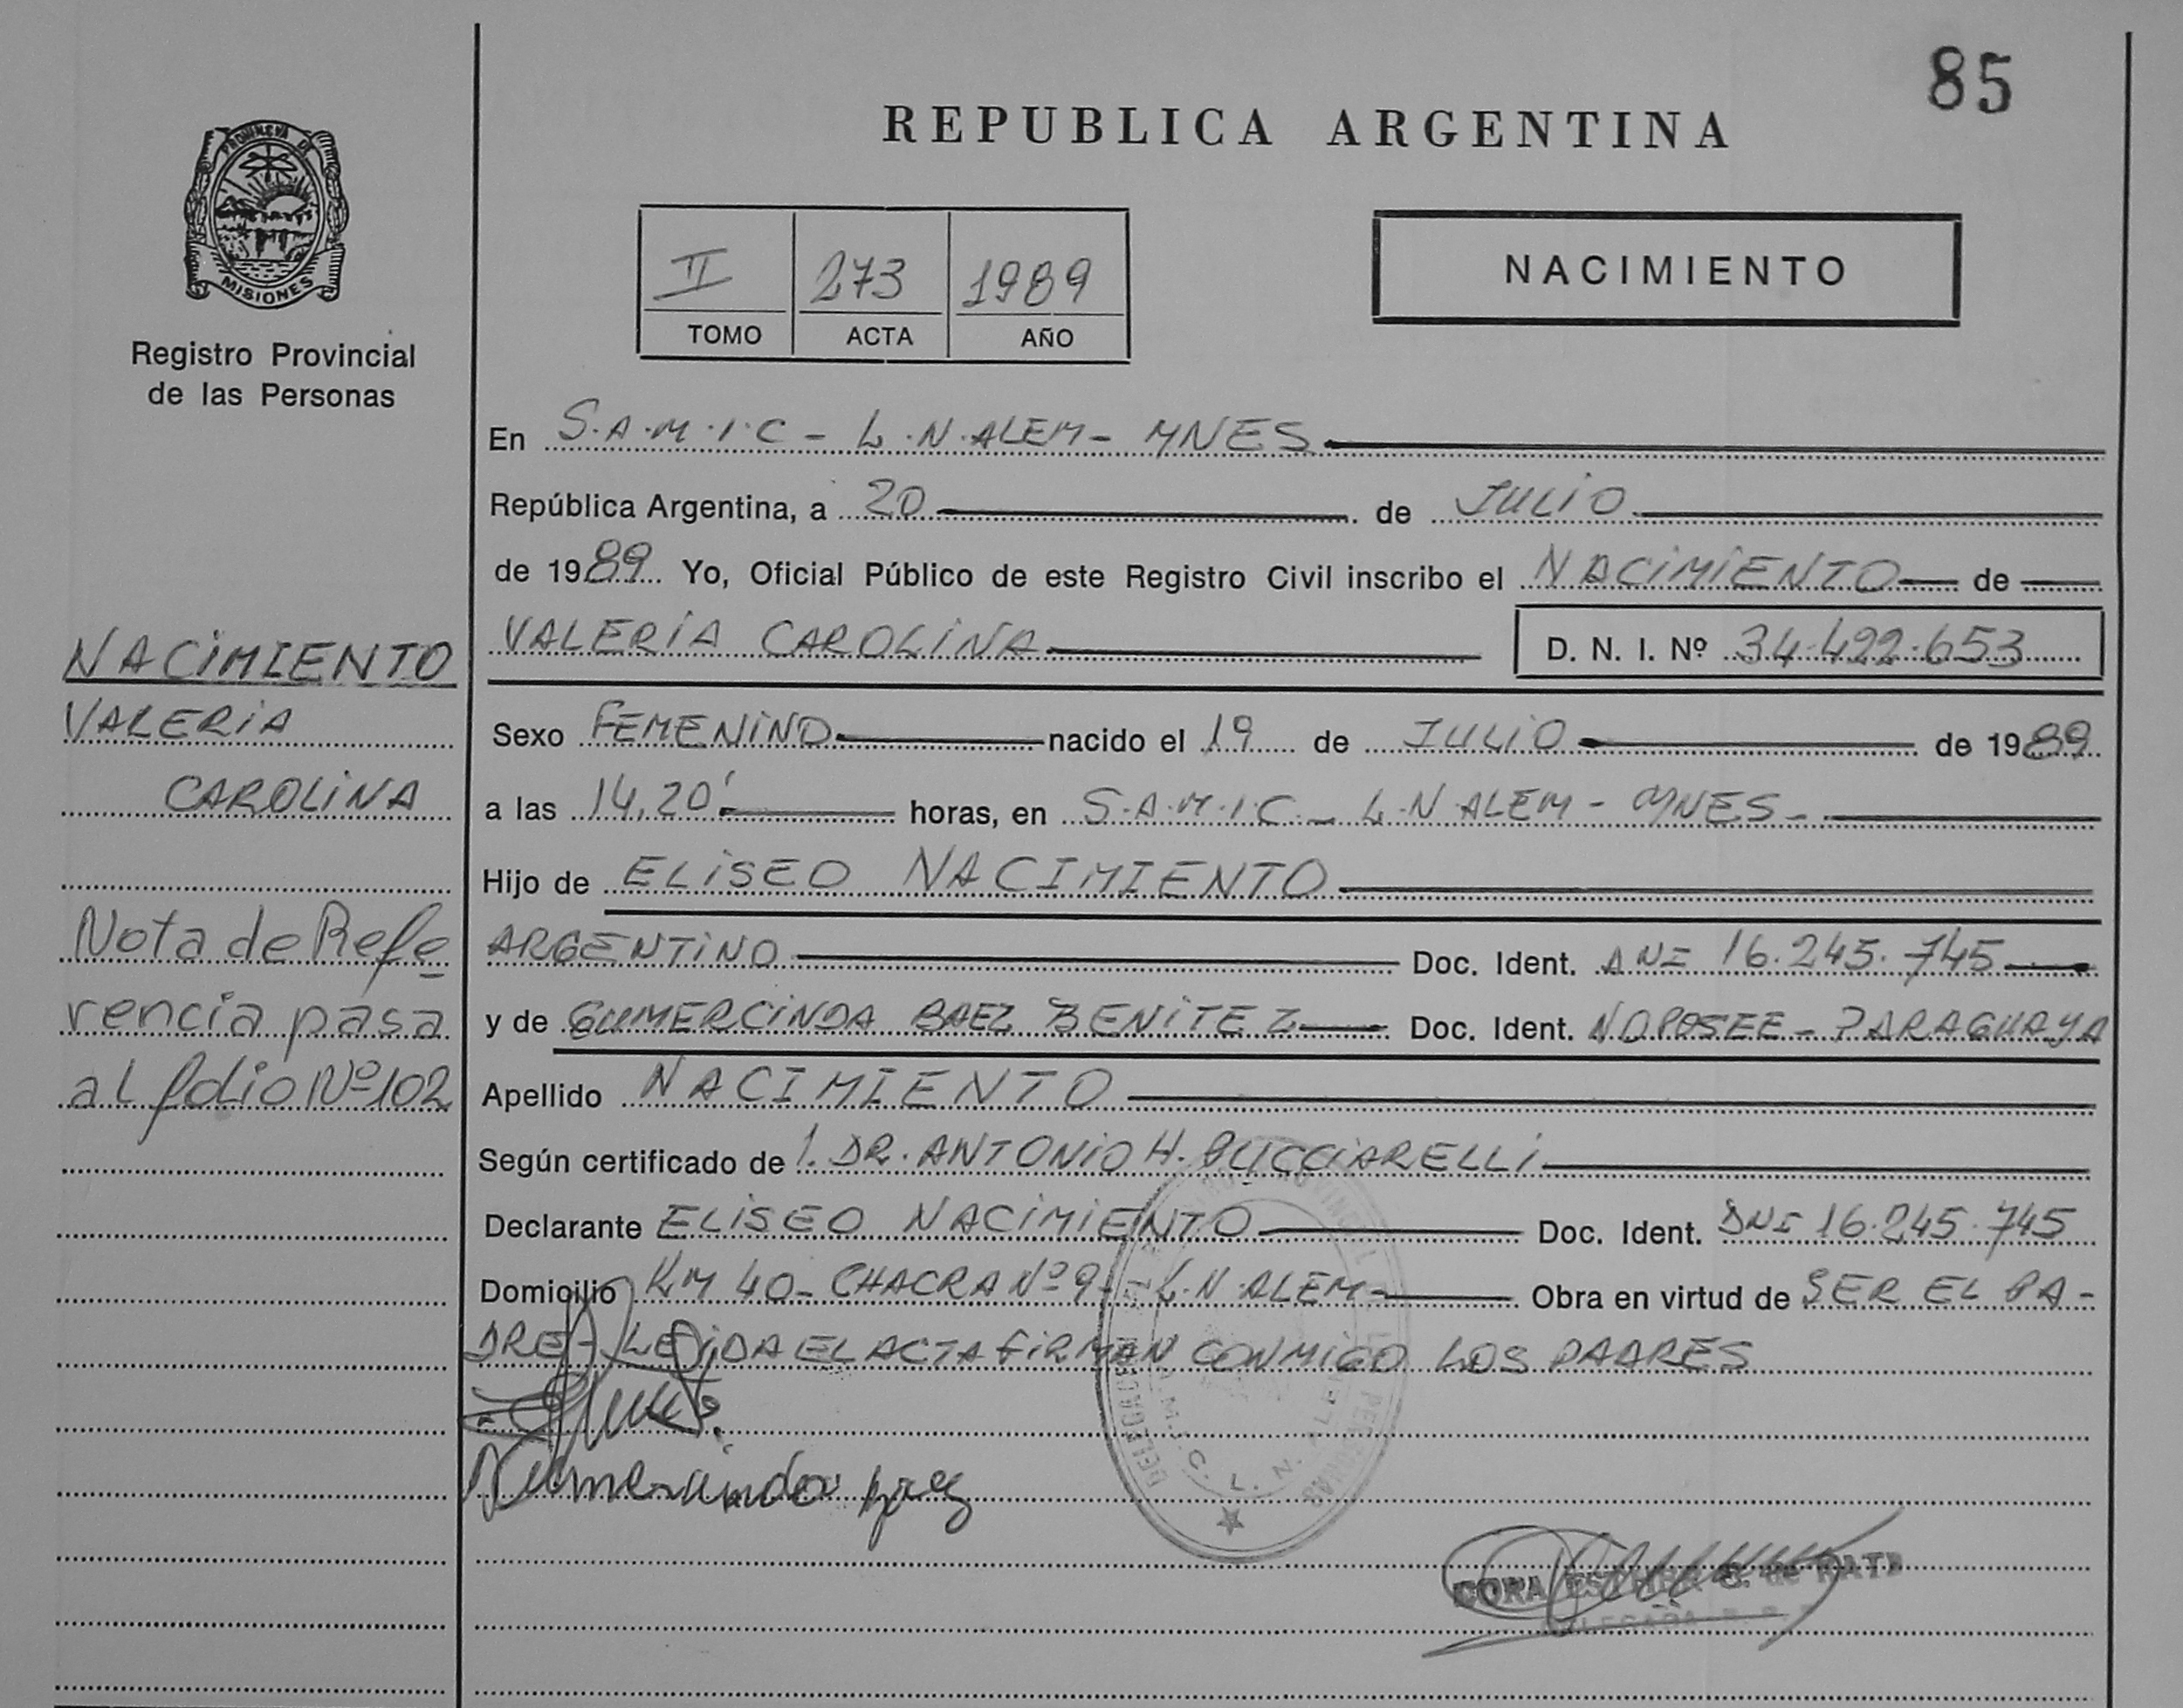 85
REPUBLICA ARGENTINA
PROVINCIA DE
MISIONES
Registro Provincial
de las Personas
II 273 1989
TOMO ACTA AÑO
NACIMIENTO
En S.A.M.I.C - L.N.ALEM - MNES
República Argentina, a 20 de JULIO
de 1989 Yo, Oficial Público de este Registro Civil inscribo el NACIMIENTO de
VALERIA CAROLINA D. N. I. Nº 34.422.653
Sexo FEMENINO nacido el 19 de JULIO de 1989
a las 14,20' horas, en S.A.M.I.C - L.N ALEM - MNES -
Hijo de ELISEO NACIMIENTO
ARGENTINO Doc. Ident. DNI 16.245.745
y de GUMERCINDA BAEZ BENITEZ Doc. Ident. NO POSEE - PARAGUAYA
Apellido NACIMIENTO
Según certificado de 1. DR. ANTONIO H. BUCCIARELLI
Declarante ELISEO NACIMIENTO Doc. Ident. DNI 16.245.745
Domicilio KM 40 - CHACRA Nº 9 - L.N ALEM - Obra en virtud de SER EL PA-
DRE - LEIDA EL ACTA FIRMAN CONMIGO LOS PADRES
NACIMIENTO
VALERIA
CAROLINA
Nota de Refe
rencia pasa
al folio Nº 102
DELEGACION
L. N.
PERSONAS
CORA